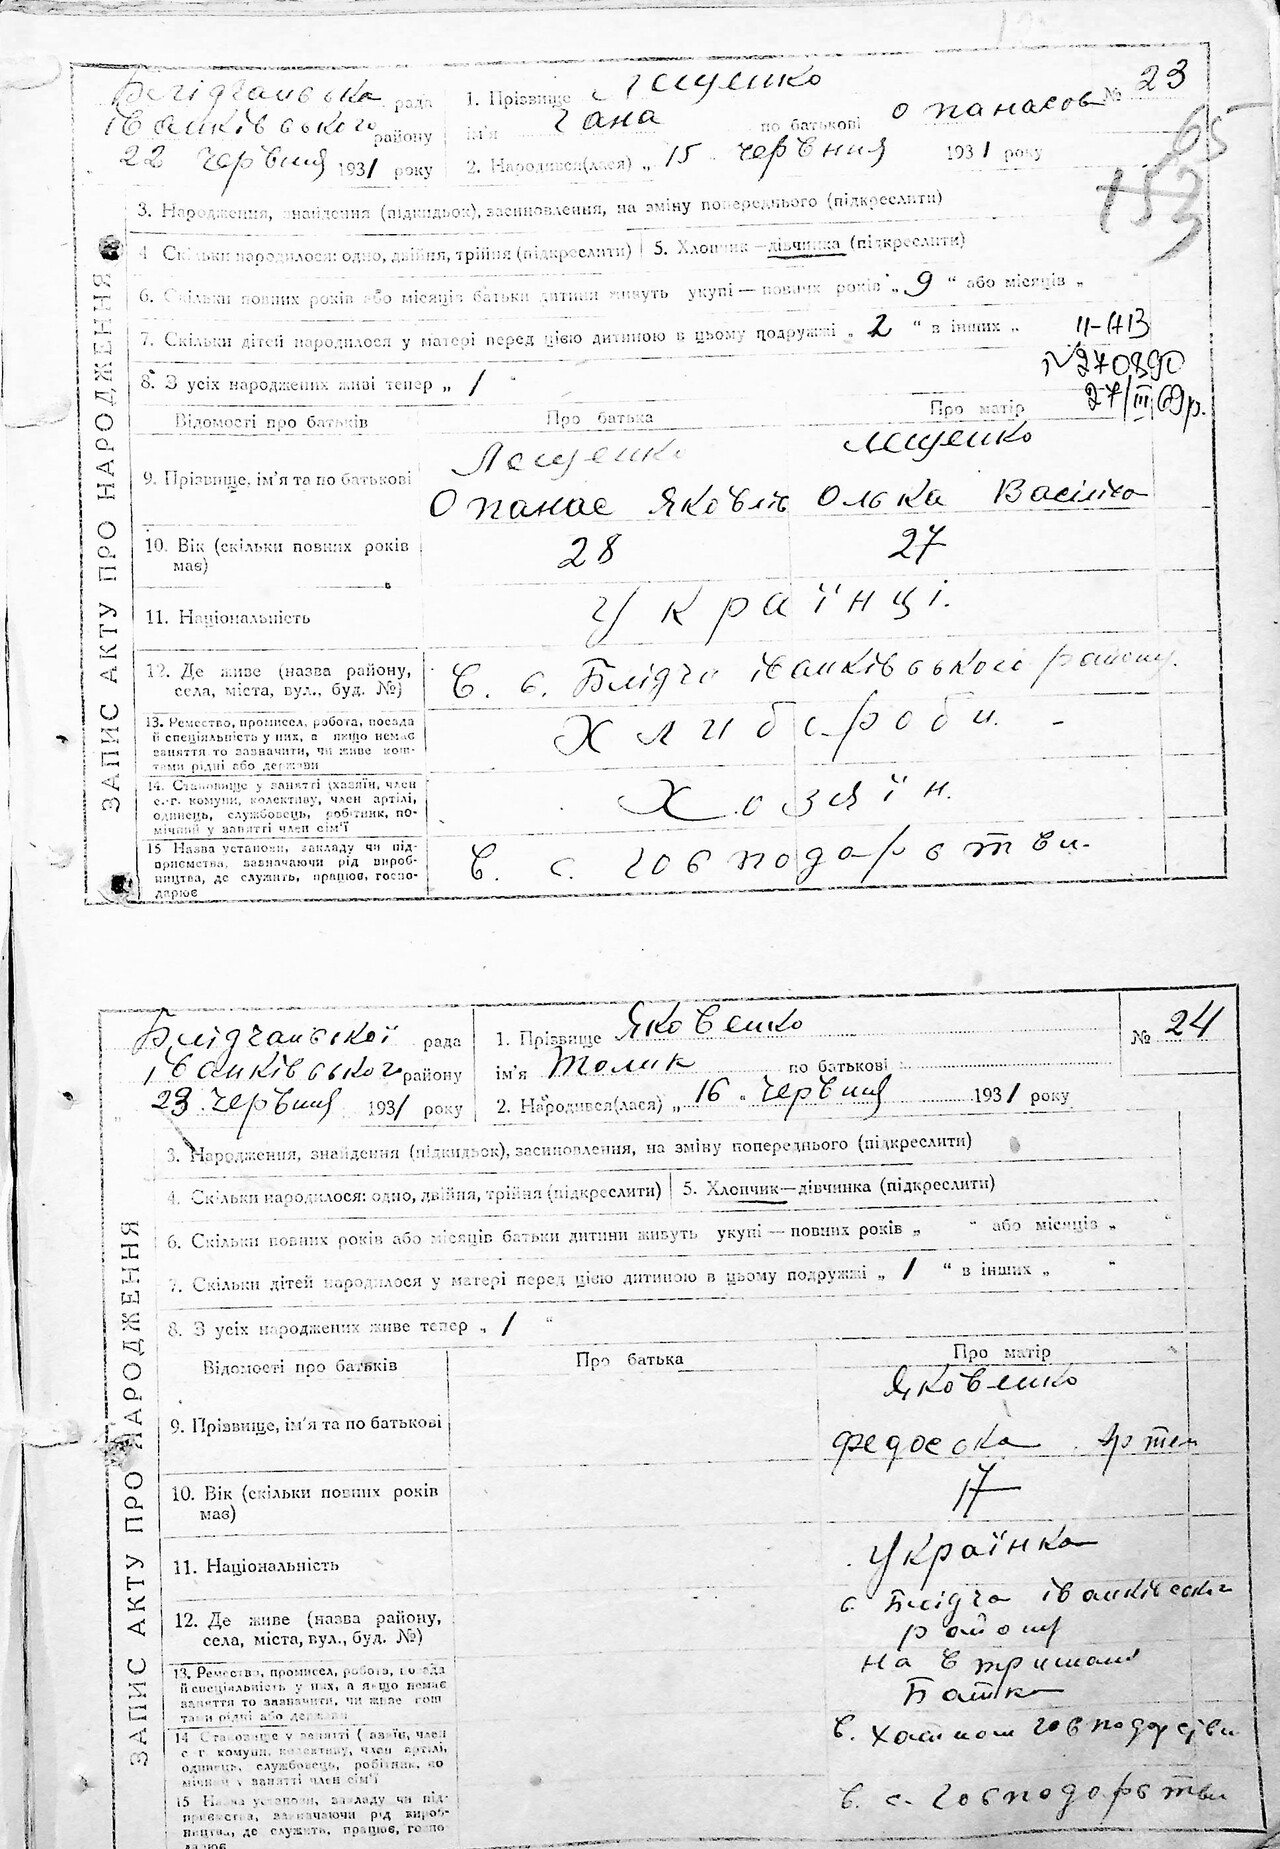 ЗАПИС АКТУ ПРО НАРОДЖЕННЯ
Блідчанська рада
Іванківського району
22 червня 1931 року
1. Прізвище Лещенко
ім'я Гана по батькові Опанасов
№ 23
2. Народився(лася) „ 15 червня 1931 року
65
153
3. Народження, знайдення (підкидьок), засиновлення, на зміну попереднього (підкреслити)
4 Скільки народилося: одно, двійня, трійня (підкреслити)
5. Хлопчик—дівчинка (підкреслити)
6. Скільки повних років або місяців батьки дитини живуть укупі — повних років „ 9 “ або місяців „
7. Скільки дітей народилося у матері перед цією дитиною в цьому подружжі „ 2 “ в інших „
8. З усіх народжених живі тепер „ 1 “
II-АВ
№270890
27/III 69р.
Відомості про батьків
Про батька
Про матір
9. Прізвище, ім'я та по батькові
Лещенко
Опанас Яковлів
Лещенко
Олька Васілів
10. Вік (скільки повних років має)
28
27
11. Національність
Українці.
12. Де живе (назва району,
села, міста, вул., буд. №)
в. с. Блідча Іванківського району.
13. Ремество, промисел, робота, посада
й спеціяльність у них, а якщо немає
заняття то зазначити, чи живе кош-
тами рідні або держави
Хлибороби. -
14. Становище у занятті (хазяїн, член
с.-г. комуни, колективу, член артілі,
одинець, службовець, робітник, по-
мічний у занятті член сім'ї
Хозяїн.
15 Назва установи, закладу чи під-
приємства, зазначаючи рід вироб-
ництва, де служить, працює, госпо-
дарює
в. с. господарстви.
ЗАПИС АКТУ ПРО НАРОДЖЕННЯ
Блідчанської рада
Іванківського району
23 червня 1931 року
1. Прізвище Яковенко
ім'я Толик по батькові
№ 24
2. Народився(лася) „ 16 “ червня 1931 року
3. Народження, знайдення (підкидьок), засиновлення, на зміну попереднього (підкреслити)
4. Скільки народилося: одно, двійня, трійня (підкреслити)
5. Хлопчик—дівчинка (підкреслити)
6. Скільки повних років або місяців батьки дитини живуть укупі — повних років „ “ або місяців „ “
7. Скільки дітей народилося у матері перед цією дитиною в цьому подружжі „ 1 “ в інших „ “
8. З усіх народжених живе тепер „ 1 “
Відомості про батьків
Про батька
Про матір
9. Прізвище, ім'я та по батькові
Яковенко
Федоска Артем
10. Вік (скільки повних років
має)
17
11. Національність
Українка
12. Де живе (назва району,
села, міста, вул., буд. №)
с Блідча Іванківског
району
13. Ремество, промисел, робота, посада
й спеціяльність у них, а якщо немає
заняття то зазначити, чи живе кош-
тами рідні або держави
на втримані
Батька
14 Становище у занятті (хазяїн, член
с г. комуни, колективу, член артілі,
одинець, службовець, робітник, по
мічний у занятті член сім'ї
в. господарстви
15 Назва установи, закладу чи під-
приємства, зазначаючи рід вироб-
ництва, де служить, працює, госпо-
дарює
в. с. господарстви